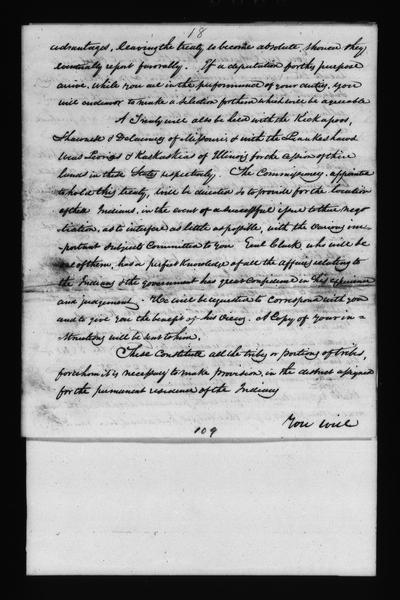 18
advantages, leaving the treaty to become absolute, should they
eventually report favorably. If a deputation for this purpose
arrive, while you are in the performance of your duty, you
will endeavor to make a selection for them which will be agreeable
A Treaty will also be held with the Kickapoos,
Shawnese & Delawares of Missouri, & with the Piankeshaws
Weas Peorias & Kaskaskias of Illinois for the cession of their
lands in those States respectively. The Commissioners, appointed
to hold this treaty, will be directed so to provide for the location
of these Indians, in the event of a successful issue to their nego
tiation, as to interfere as little as possible, with the various im
portant subjects Committed to you. Genl Clark, who will be
one of them, has a perfect knowledge of all the affairs relating to
the Indians & the government has great confidence in his experience
and judgement. He will be requested to correspond with you
and to give you the benefit of his views. A Copy of your in=
structions will be sent to him.
These Constitute all the tribes or portions of tribes,
for whom it is necessary to make provision, in the district assigned
for the permanent residence of the Indians
You will
109